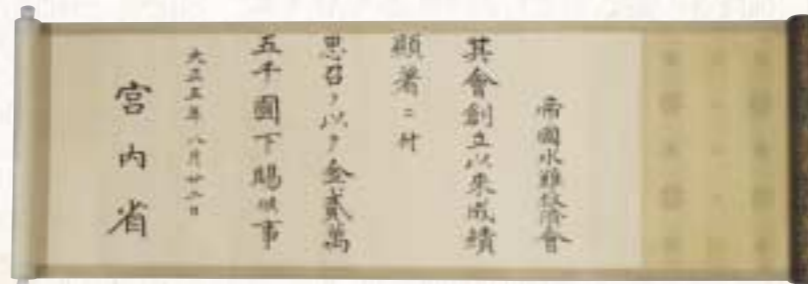 帝國水難救濟會
其會創立以來成績
顯著ニ付
思召ヲ以テ金貳萬
五千圓下賜候事
大正五年八月廿二日
宮内省